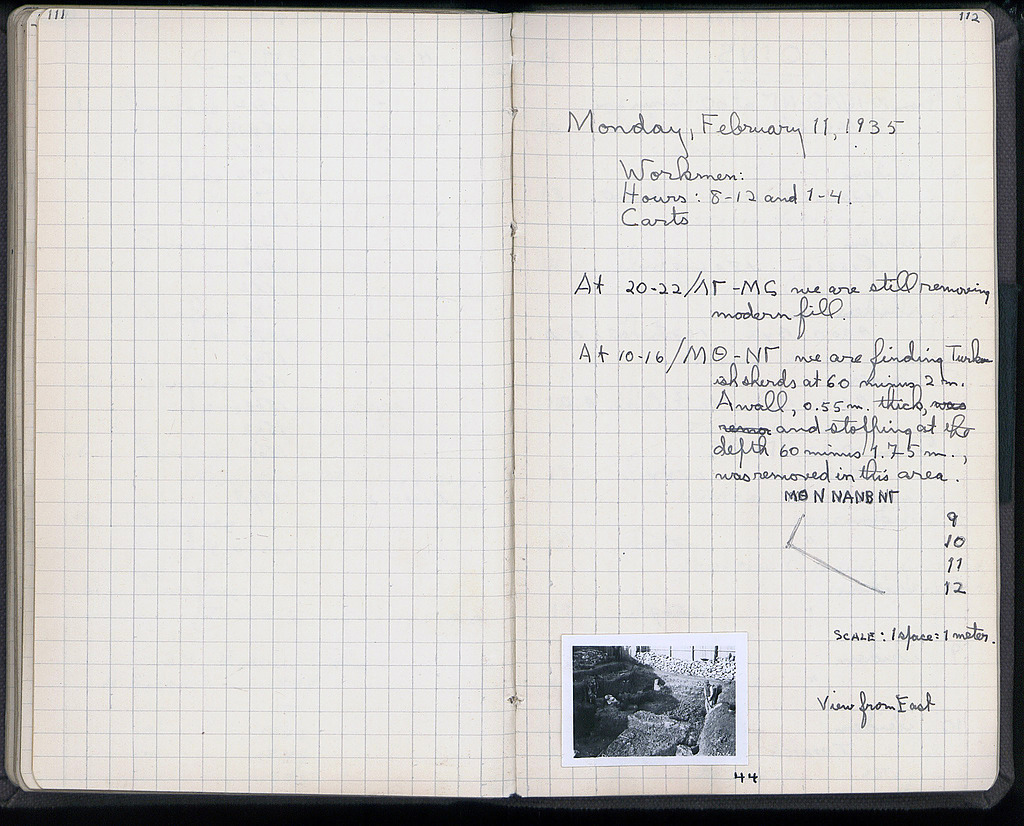 111
112
Monday, February 11, 1935
Workmen:
Hours: 8-12 and 1-4.
Carts
At 20-22/ΛΓ-Μς we are still removing
modern fill.
At 10-16/ΜΘ-ΝΓ we are finding Turk-
ish sherds at 60 minus 2 m.
A wall, 0.55 m. thick, was
remo and stopping at the
depth 60 minus 1.75 m.,
was removed in this area.
ΜΘ Ν ΝΑ ΝΒ ΝΓ
9
10
11
12
SCALE: 1 space = 1 meter.
View from East
44